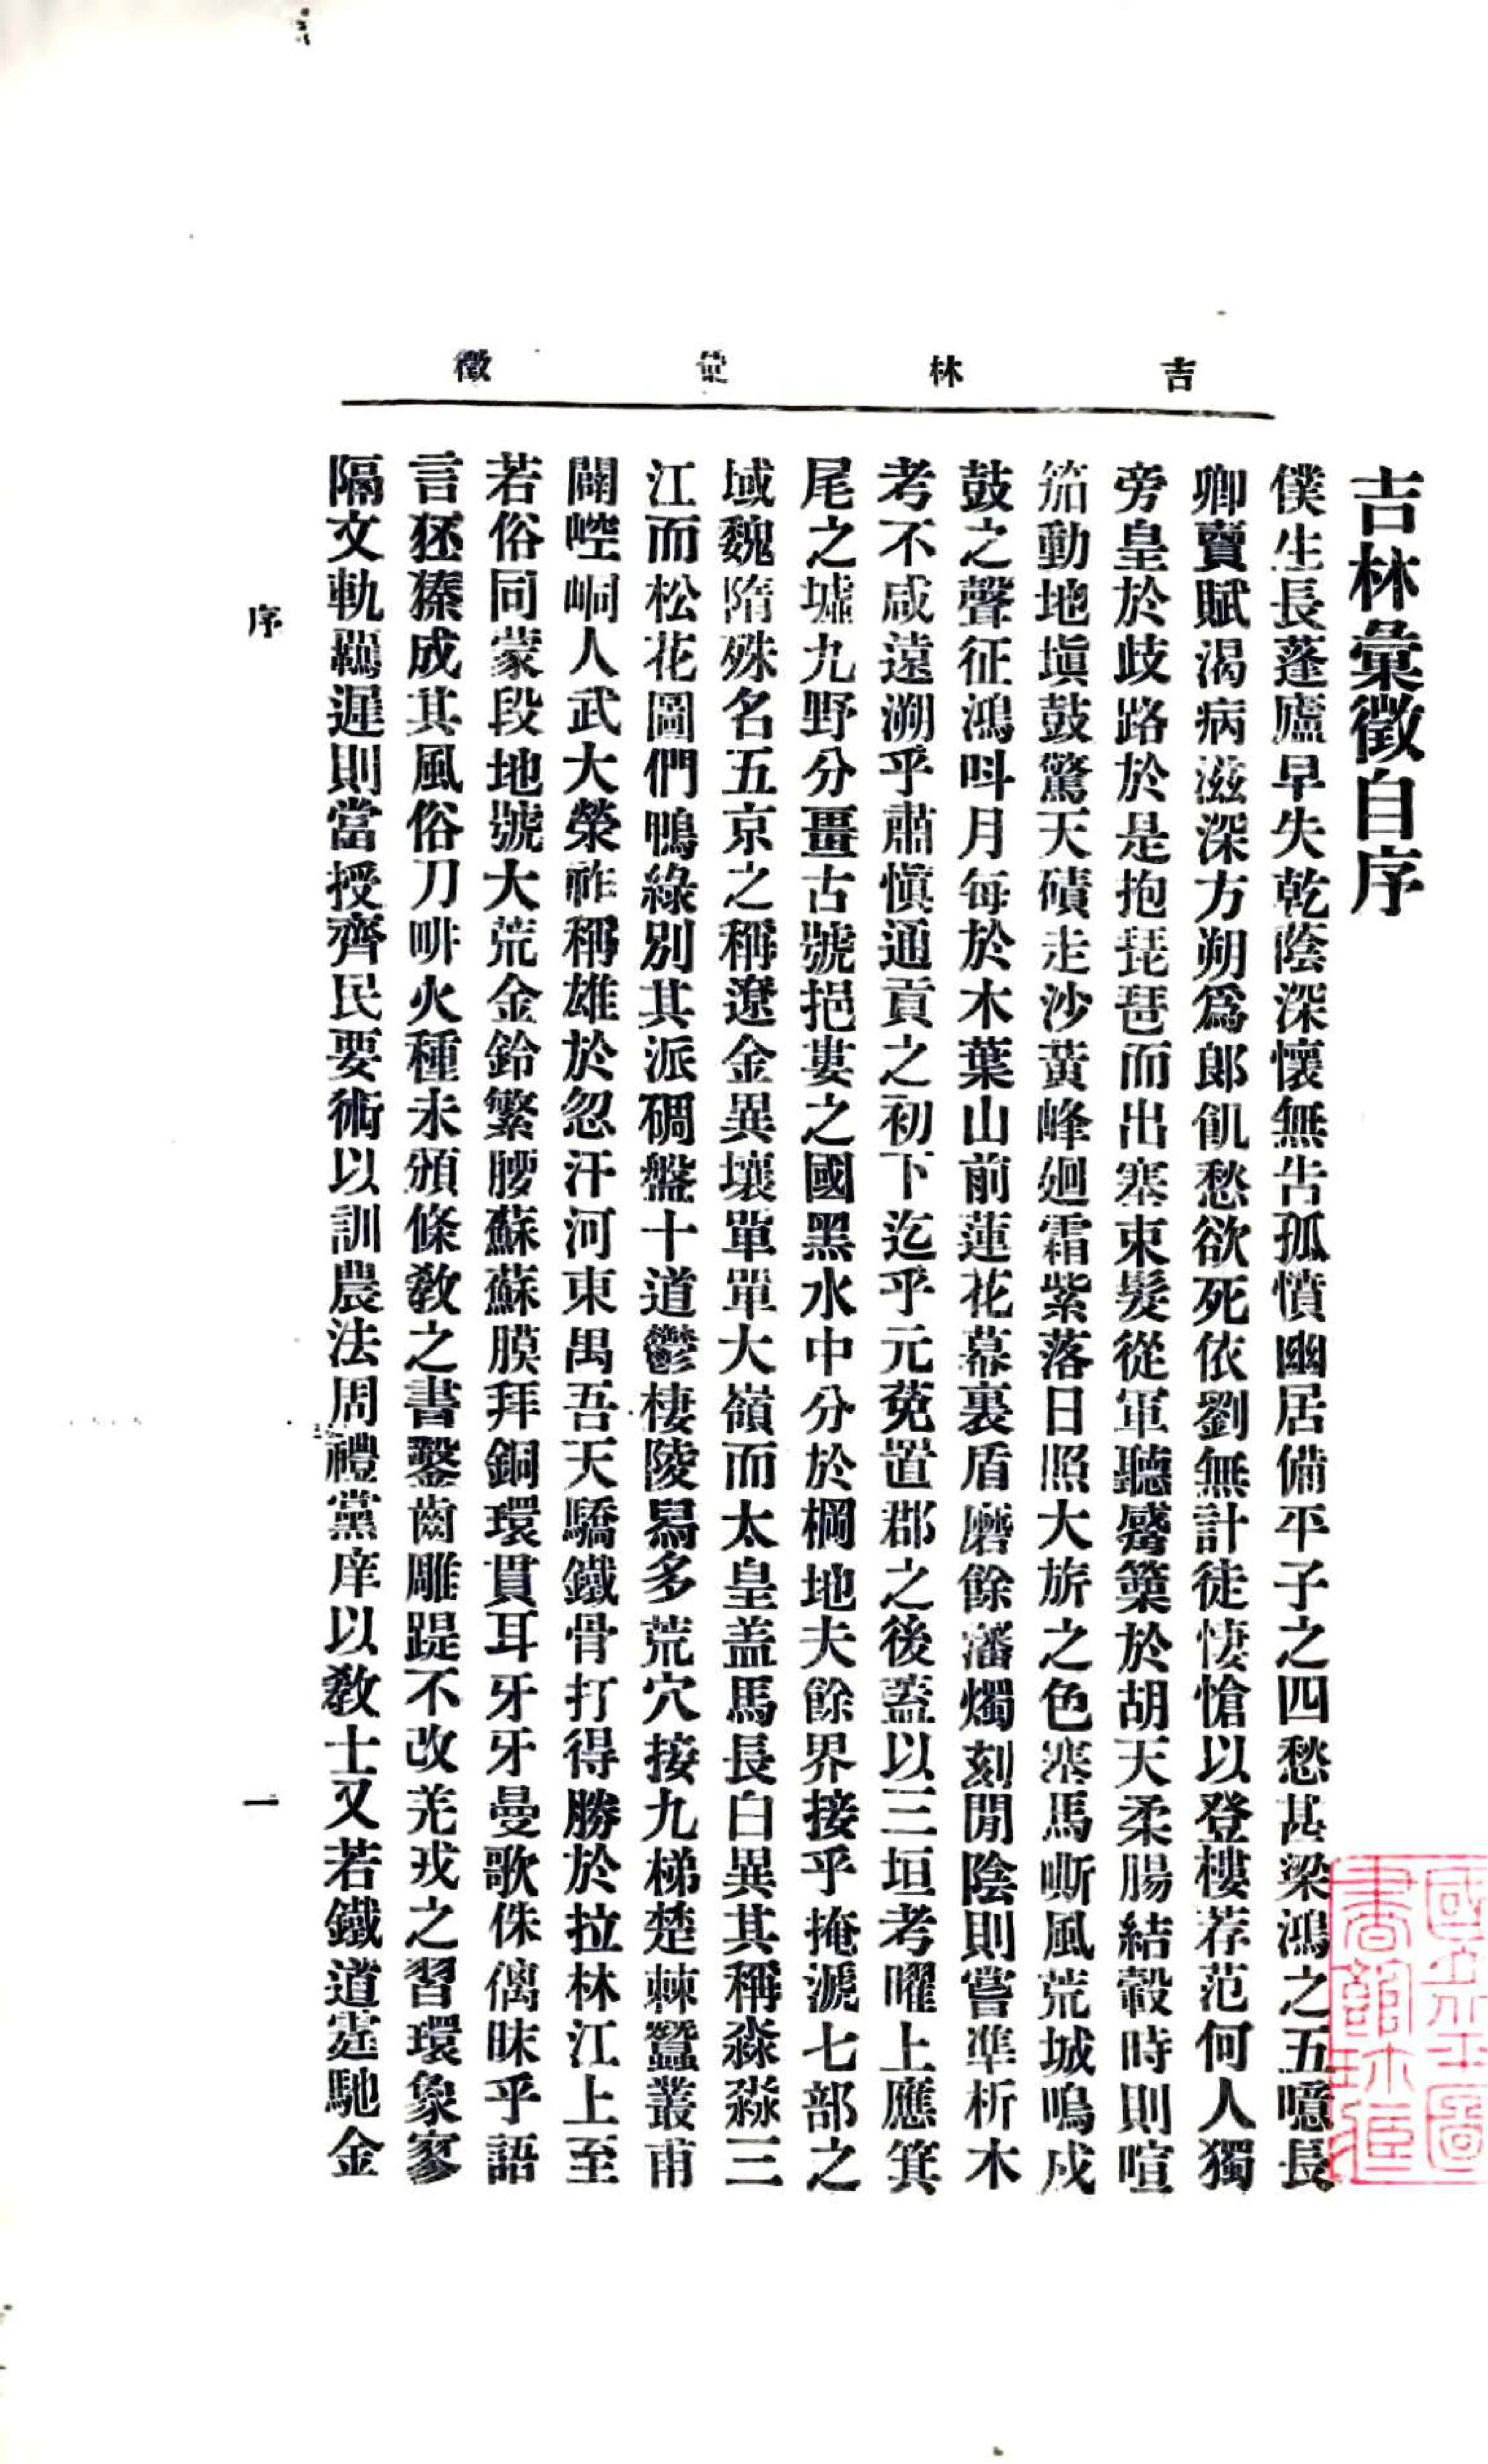 吉林彙徵
吉林彙徵自序
僕生長蓬廬早失乾蔭深懷無告孤憤幽居備平子之四愁甚梁鴻之五噫長
卿賣賦渴病滋深方朔爲郎飢愁欲死依劉無計徒悽愴以登樓荐范何人獨
旁皇於歧路於是抱琵琶而出塞束髮從軍聽觱篥於胡天柔腸結轂時則喧
笳動地塡鼓驚天磧走沙黃峰廻霜紫落日照大旂之色塞馬嘶風荒城鳴戍
鼓之聲征鴻呌月每於木葉山前蓮花幕裏盾磨餘瀋燭刻閒陰則嘗準析木
考不咸遠溯乎肅愼通貢之初下迄乎元菟置郡之後蓋以三垣考曜上應箕
尾之墟九野分畺古號挹婁之國黑水中分於棡地夫餘界接乎掩㴲七部之
域魏隋殊名五京之稱遼金異壤單單大嶺而太皇盖馬長白異其稱淼淼三
江而松花圖們鴨綠別其派磵盤十道鬱棲陵舄多荒穴接九梯楚棘蠶叢甫
闢崆峒人武大榮祚稱雄於忽汗河東禺吾天驕鐵骨打得勝於拉林江上至
若俗同蒙段地號大荒金鈴繁腰蘇蘇膜拜銅環貫耳牙牙曼歌侏𠌯昧乎語
言狉獉成其風俗刀畊火種未頒條敎之書鑿齒雕踶不改羌戎之習環象寥
隔文軌羈遲則當授齊民要術以訓農法周禮黨庠以敎士又若鐵道霆馳金
序
一
國立北平圖
書館珍藏